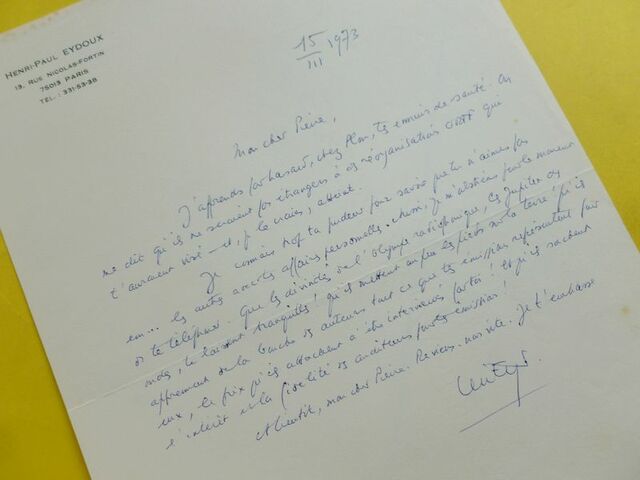 HENRI-PAUL EYDOUX
13, RUE NICOLAS-FORTIN
75013 PARIS
TÉL. : 331-53-38
15
III 1973
Mon cher Pierre,
J'apprends par hasard, chez Plon, tes ennuis de santé. On
me dit qu'ils ne seraient pas étrangers à la réorganisation ORTF qui
t'aurait visé – et, je le crains, atteint.
Je connais trop ta pudeur pour savoir que tu n'aimes pas
em... les autres avec tes affaires personnelles. Aussi, je m'abstiens pour le moment
de te téléphoner. Que les divinités de l'Olympe radiophonique, les Jupiter du
mois, te laissent tranquille ! qu'ils mettent un peu les pieds sur la terre ! qu'ils
apprennent de la bouche des auteurs tout ce que tes émissions représentent pour
eux, le prix qu'ils attachent à être interviewés par toi ! et qu'ils sachent
l'intérêt et la fidélité des auditeurs pour tes émissions !
A bientôt, mon cher Pierre. Reviens-nous vite. Je t'embrasse